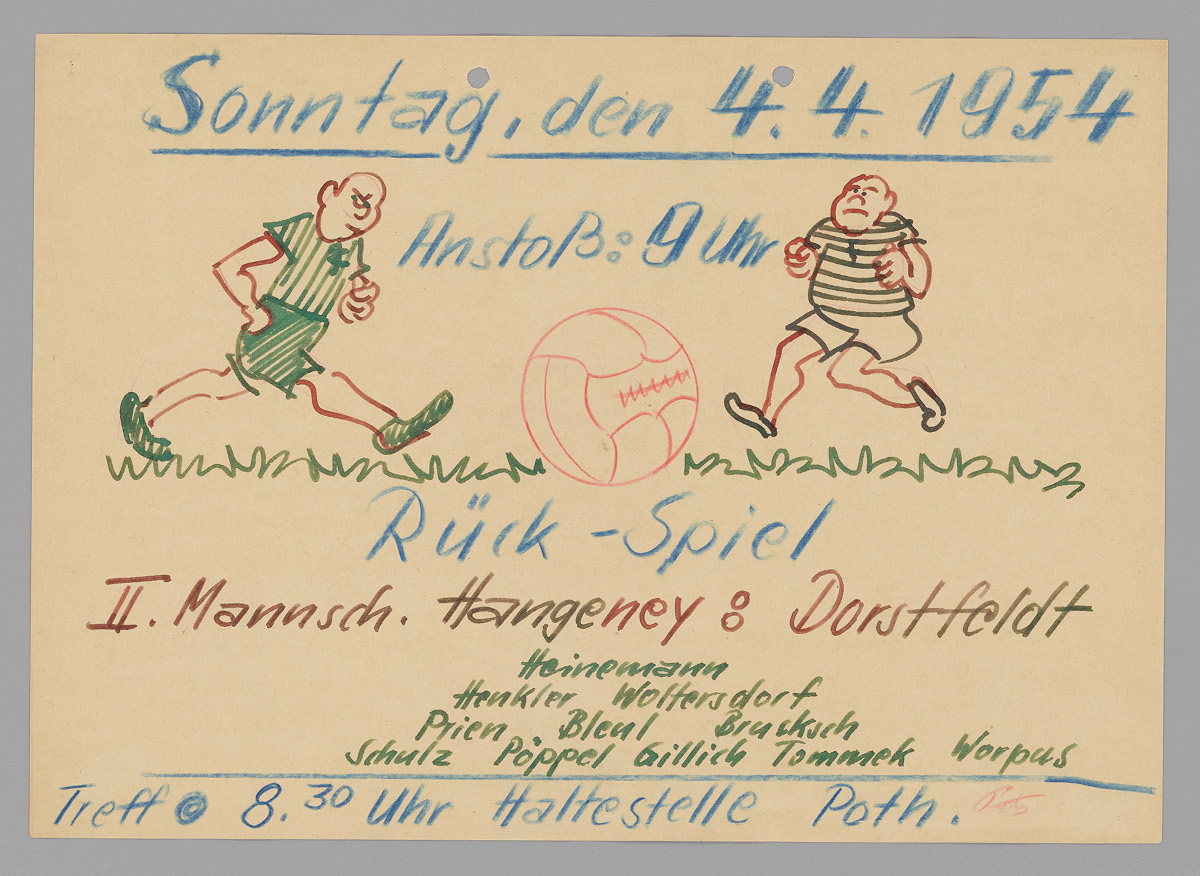 Sonntag, den 4. 4. 1954
Anstoß: 9 Uhr
Rück - Spiel
II. Mannsch. Hangeney : Dorstfeldt
Heinemann
Henkler Woltersdorf
Prien Bleul Brucksch
Schulz Pöppel Gillich Tommek Worpus
Treff 8.30 Uhr Haltestelle Poth.